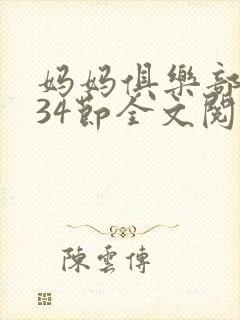 妈妈俱樂部
34節全文閱
陳雲傳